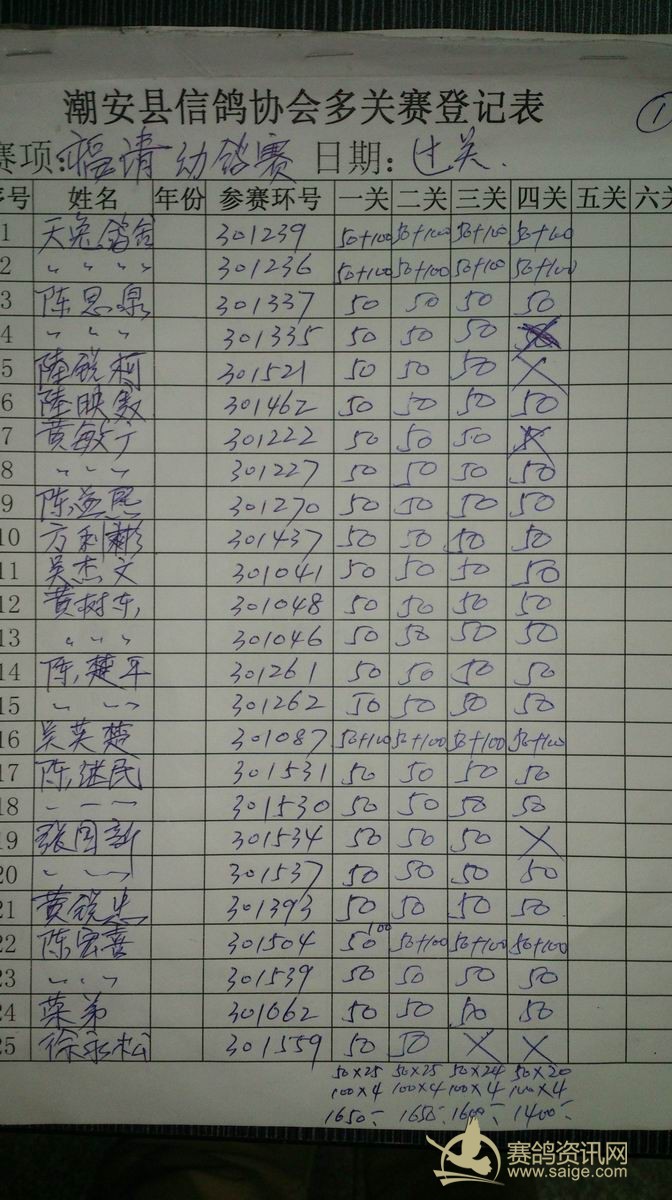 潮安县信鸽协会多关赛登记表 ①
赛项:福清幼鸽赛 日期:过关.
序号 姓名 年份 参赛环号 一关 二关 三关 四关 五关 六关
1 天兔鸽舍 301239 50+100 50+100 50+100 50+100
2 〃 〃 〃 〃 301236 50+100 50+100 50+100 50+100
3 陈思鼎 301337 50 50 50 50
4 〃 〃 〃 301335 50 50 50
5 陆锐柯 301521 50 50 50 ×
6 陆映 301462 50 50 50 50
7 黄敏宁 301222 50 50 50
8 〃 〃 〃 301227 50 50 50 50
9 陈 301270 50 50 50 50
10 方利彬 301437 50 50 50 50
11 吴杰文 301041 50 50 50 50
12 黄树东 301048 50 50 50 50
13 〃 〃 〃 301046 50 50 50 50
14 陈楚平 301261 50 50 50 50
15 〃 〃 〃 301262 50 50 50 50
16 吴英楚 301087 50+100 50+100 50+100 50+100
17 陈继民 301531 50 50 50 50
18 〃 〃 〃 301530 50 50 50 50
19 张国新 301534 50 50 50 ×
20 〃 〃 〃 301537 50 50 50 50
21 黄锐忠 301393 50 50 50 50
22 陈宏喜 301504 50 100 50+100 50+100 50+100
23 〃 〃 〃 301539 50 50 50 50
24 弟 301062 50 50 50 50
25 徐永松 301559 50 50 × ×
50×25 50×25 50×24 50×20
100×4 100×4 100×4 100×4
1650- 1650- 1600- 1400-
赛鸽资讯网
www.saige.com